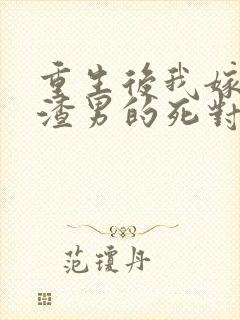 重生後我嫁
渣男的死對
范瓊丹